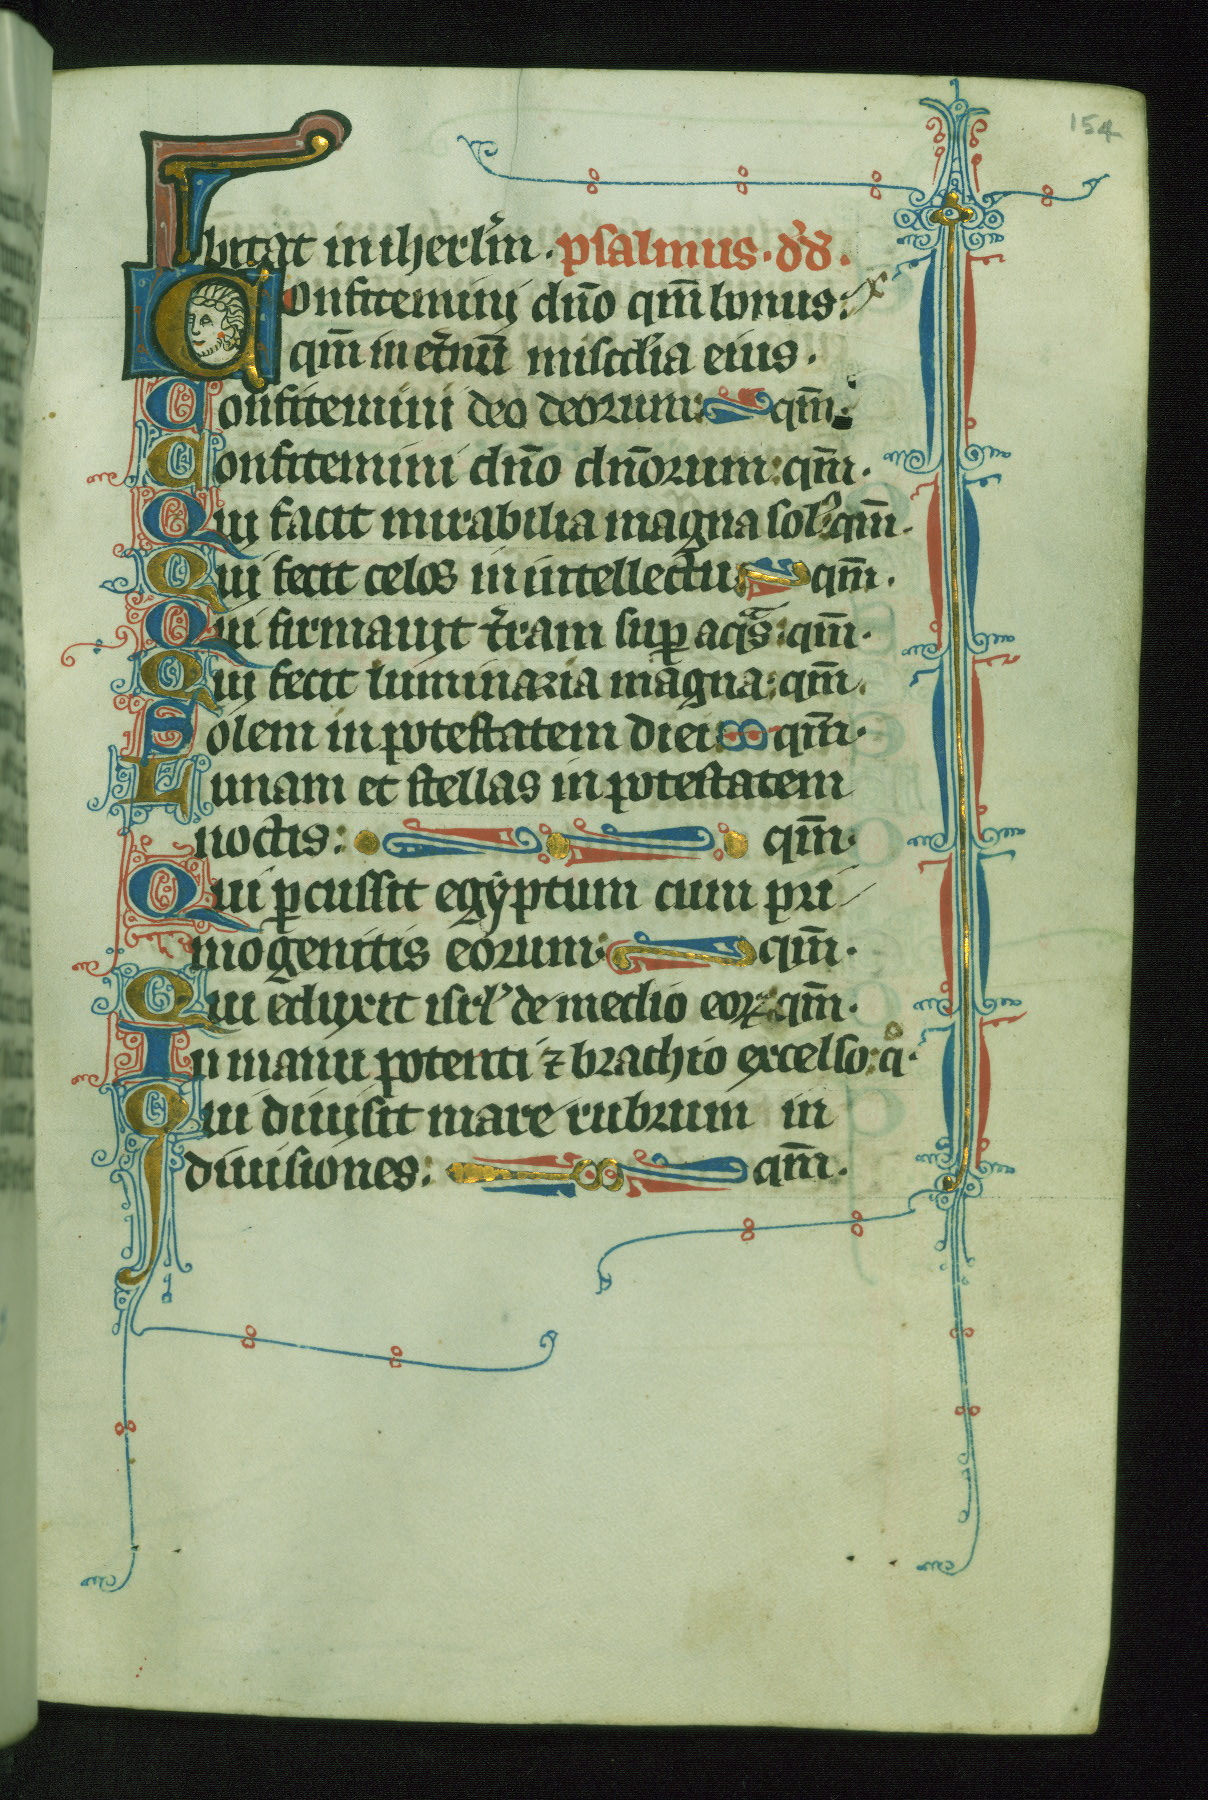 154
bitat in iherl̃m. psalmus. d̃d.
Confitemini dño qm̃ bonus:
qm̃ in et̃num̃ mis̃cdia eius.
Confitemini deo deorum: qm̃.
Confitemini dño dñorum: qm̃.
Qui facit mirabilia magna sol᷒: qm̃.
Qui fecit celos in intellectu: qm̃.
Qui firmauit t̃ram suꝑ aqᷓs: qm̃.
Qui fecit luminaria magna: qm̃.
Solem in potestatem diei: qm̃.
Lunam et stellas in potestatem
noctis: qm̃.
Qui ꝑcussit egyptum cum pri
mogenitis eorum: qm̃.
Qui eduxit isrl᷒ de medio eoꝝ: qm̃.
In manu potenti ⁊ brachio excelso: q̃.
Qui diuisit mare rubrum in
diuisiones: qm̃.